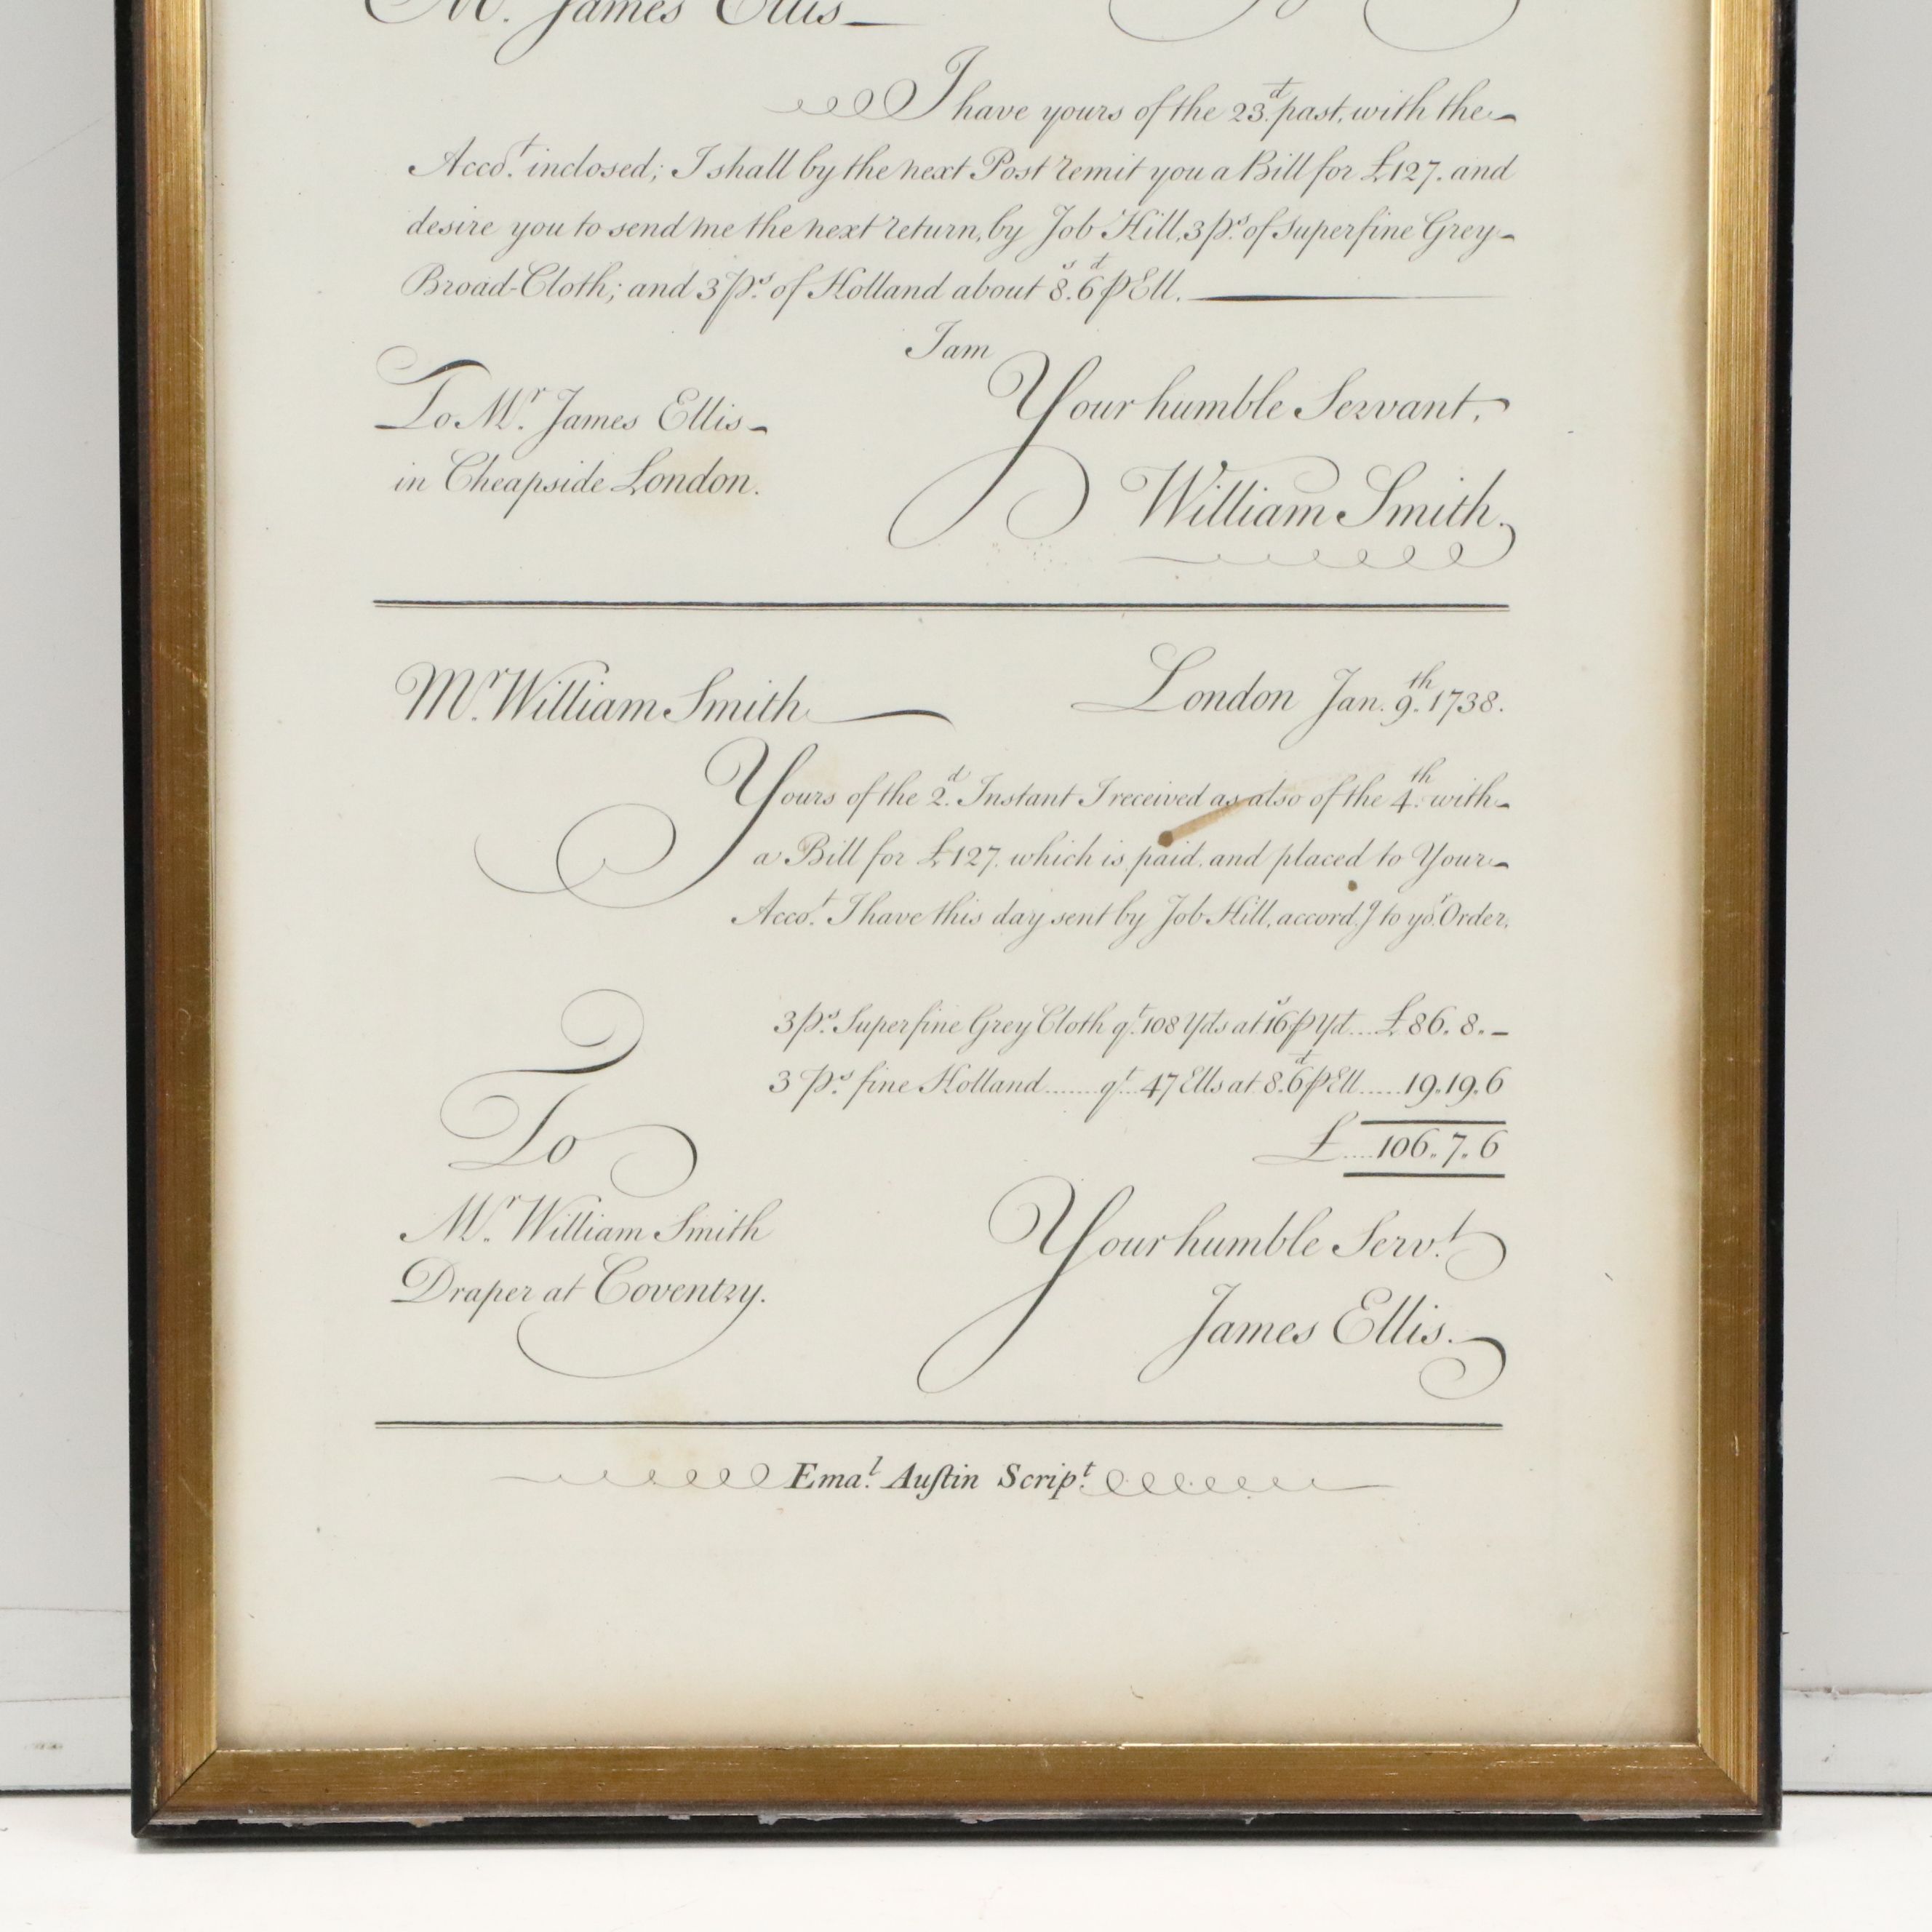 Mr. James Ellis
I have yours of the 23d. past, with the
Acco.t inclosed; I shall by the next Post remit you a Bill for £127. and
desire you to send me the next return, by Job Hill, 3 p.s of Superfine Grey
Broad-Cloth; and 3 p.s of Holland about 8s. 6d ⅌ Ell.
I am
Your humble Servant,
To M.r James Ellis
in Cheapside London.
William Smith.
M.r William Smith
London Jan. 9.th 1738.
Yours of the 2.d Instant I received as also of the 4.th with
a Bill for £127. which is paid, and placed to Your
Acco.t I have this day sent by Job Hill, accord.g to yo.r Order,
3 p.s Superfine Grey Cloth q.t 108 Yds at 16s ⅌ Yd....£86. 8. -
3 p.s fine Holland.......q.t...47 Ells at 8. 6d ⅌ Ell.....19. 19. 6
£....106. 7. 6
To
M.r William Smith
Draper at Coventry.
Your humble Serv.t
James Ellis.
Ema.l Auſtin Scrip.t